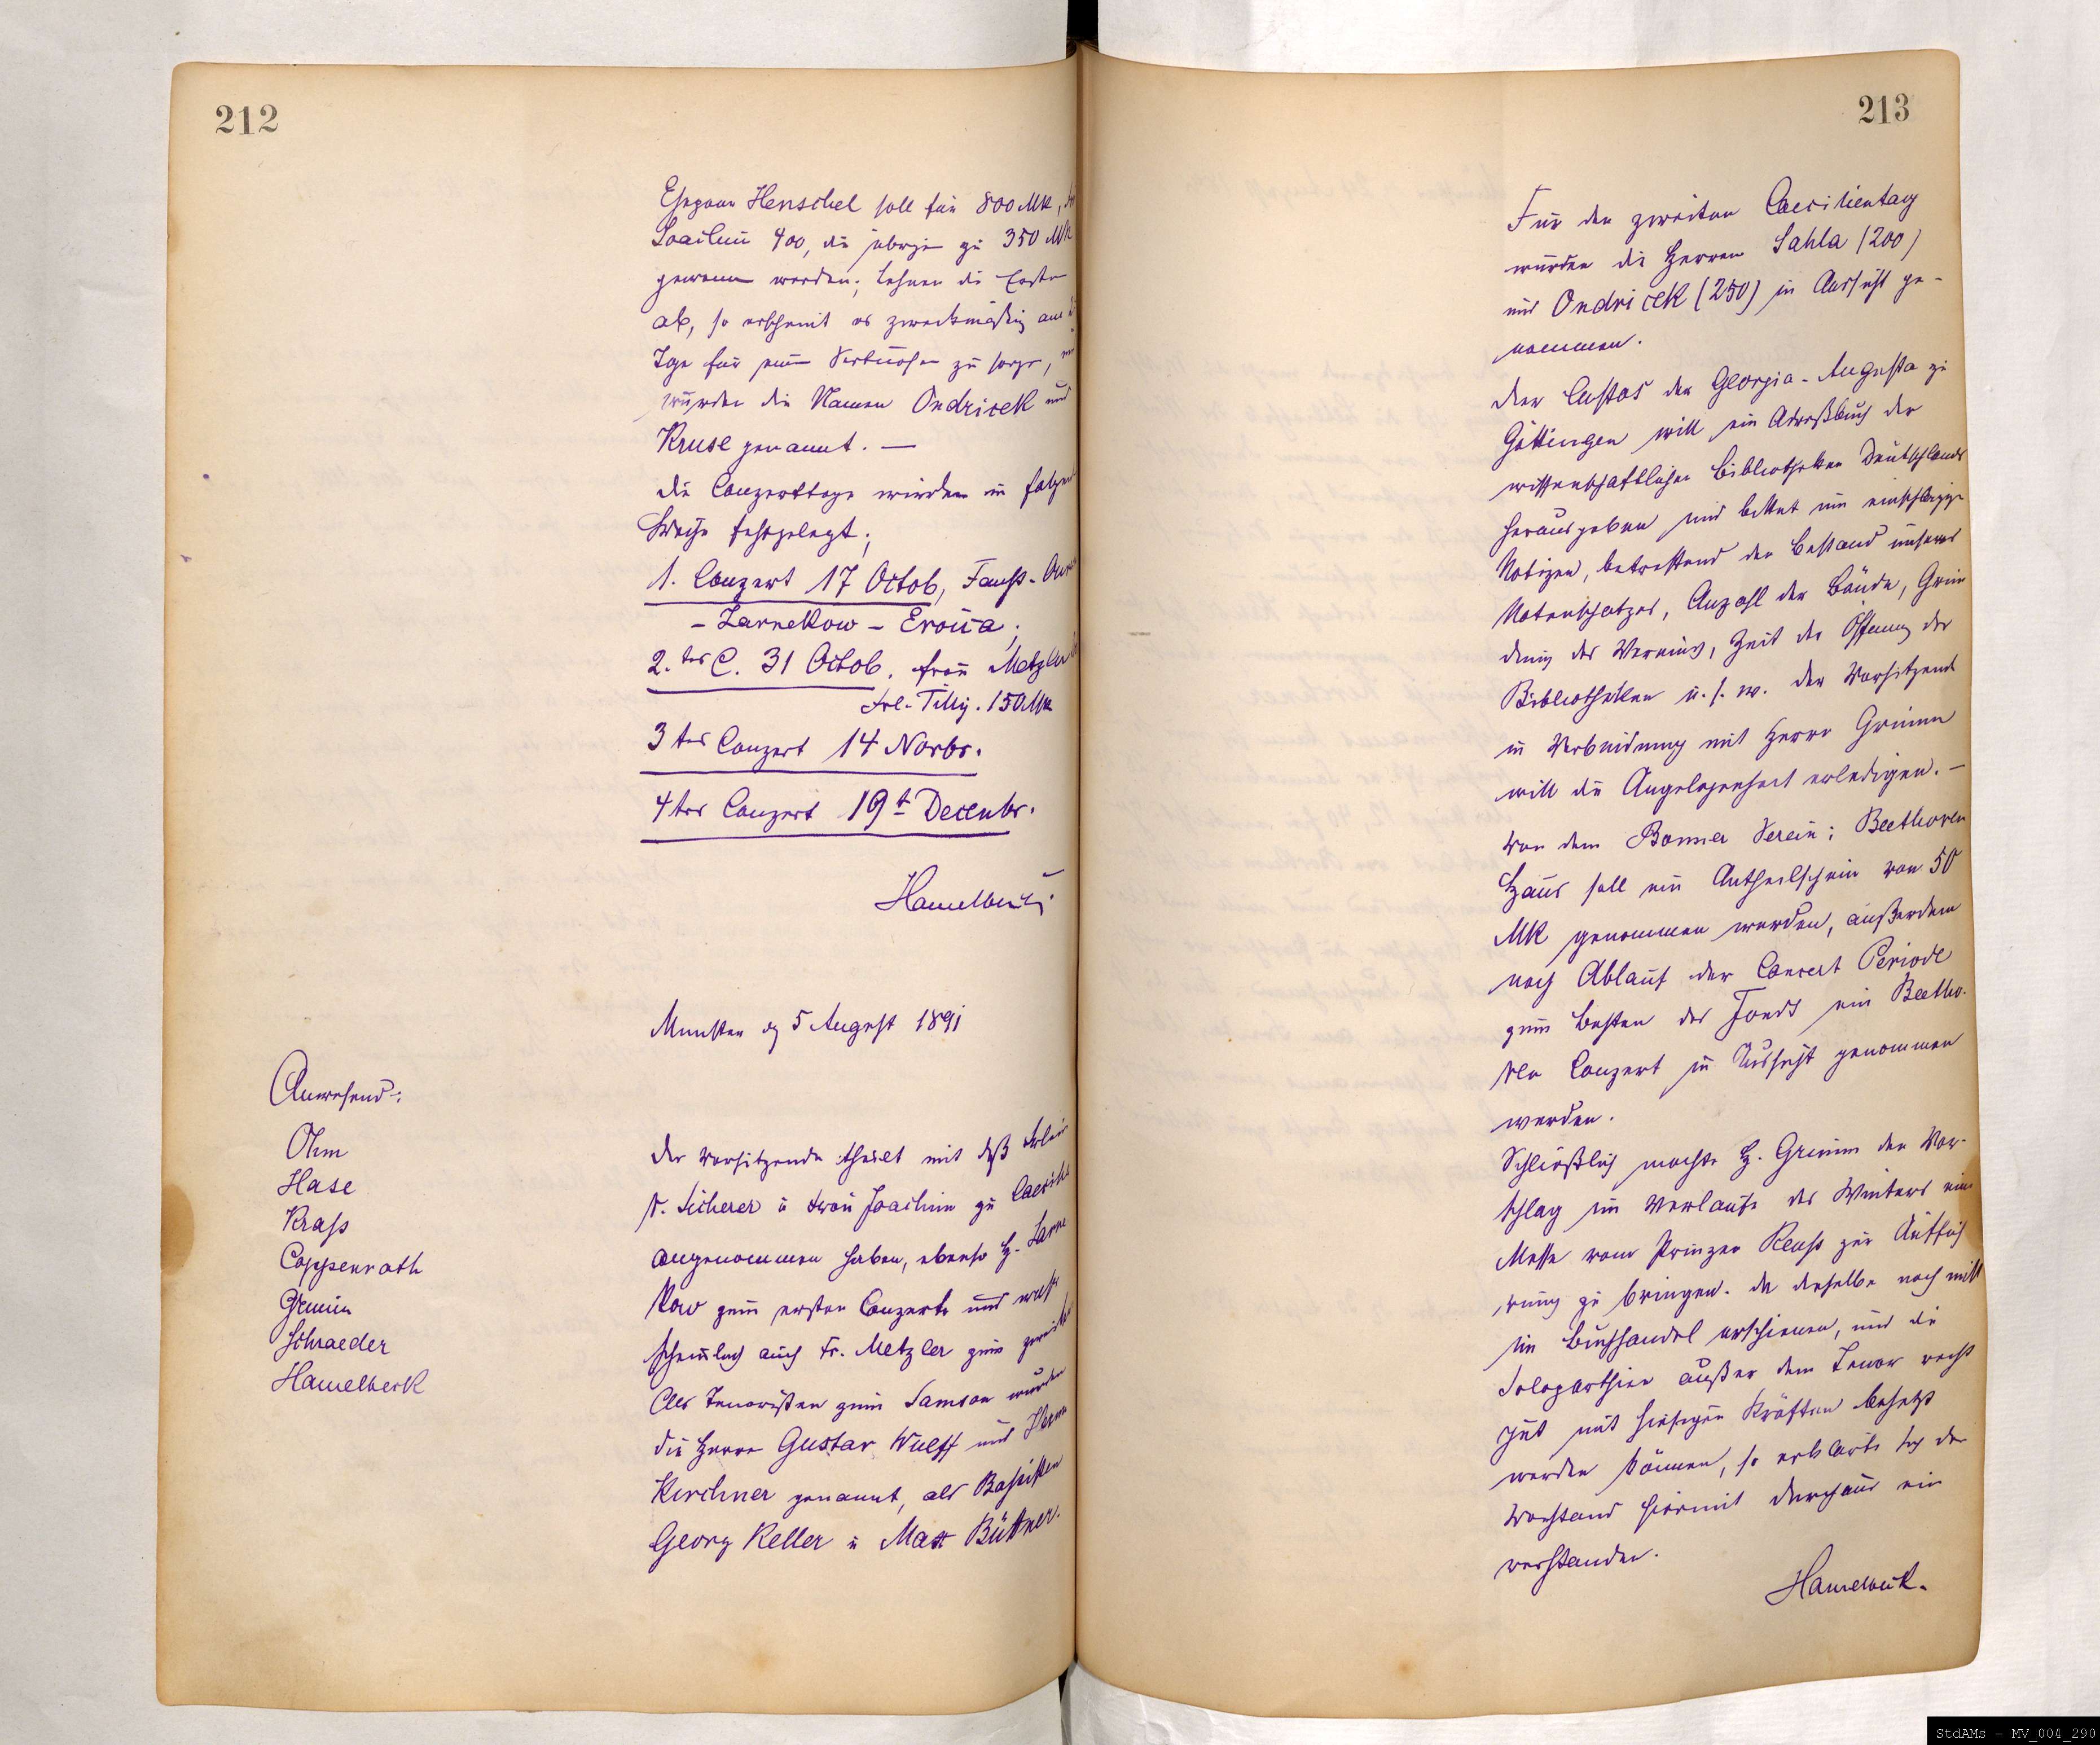 212
Ehepaar Henschel soll für 800 Mk,
Joachim 400, die übrigen zu 350 Mk
gewonnen werden; lehnen die Ersten
ab, so erscheint es zweckmäßig am
Tage für einen Virtuosen zu sorgen,
wurden die Namen Ondricek und
Kruse genannt. —
die Conzerttage wurden in folgend
Weise festgelegt;
1. Conzert 17 Octob, Faust-Ouv
- Zarnekow - Eroica;
2.tes C. 31 Octob. Frau Metzler
Frl. Tilly. 150 Mk
3tes Conzert 14 Novbr.
4tes Conzert 19t Decembr.
Hamelbeck.
Munster d 5 August 1891
Anwesend:
Ohm
Hase
Krass
Coppenrath
Grimm
Schraeder
Hamelbeck
der Vorsitzende theilt mit daß Frlein
v. Sicherer u Frau Joachim zu Caecili
angenommen haben, ebenso H. Zarne
kow zum ersten Conzerte und wahr
scheinlich auch Fr. Metzler zum zweiten
Als Tenoristen zum Samson wurden
die Herrn Gustav Wulff und Herm
Kirchner genannt, als Bassisten
Georg Keller u Max Büttner.
213
Für den zweiten Caecilientag
wurden die Herren Sahla (200)
und Ondricek (250) in Aussicht ge-
nommen.
der Custos der Georgia-Augusta zu
Göttingen will ein Adreßbuch der
wissenschaftlichen Bibliotheken Deutschlands
herausgeben und bittet um einschlägige
Notizen, betreffend den Bestand unseres
Notenschatzes, Anzahl der Bände, Grün
dung des Vereins, Zeit der Öffnung der
Bibliotheken u. s. w. der Vorsitzende
in Verbindung mit Herrn Grimm
will die Angelegenheit erledigen. —
Von dem Bonner Verein: Beethoven
Haus soll ein Antheilschein von 50
Mk genommen werden, außerdem
nach Ablauf der Concert Periode
zum Besten des Fonds ein Beetho-
ven Conzert in Aussicht genommen
werden.
Schließlich machte H. Grimm den Vor-
schlag im Verlaufe des Winters eine
Messe vom Prinzen Reuss zur Auffüh
rung zu bringen. da dieselbe noch nicht
im Buchhandel erschienen, und die
Soloparthien außer dem Tenor recht
gut mit hiesigen Kräften besetzt
werden können, so erklärte sich der
Vorstand hiermit durchaus ein
verstanden.
Hamelbeck.
StdAMs - MV_004_290